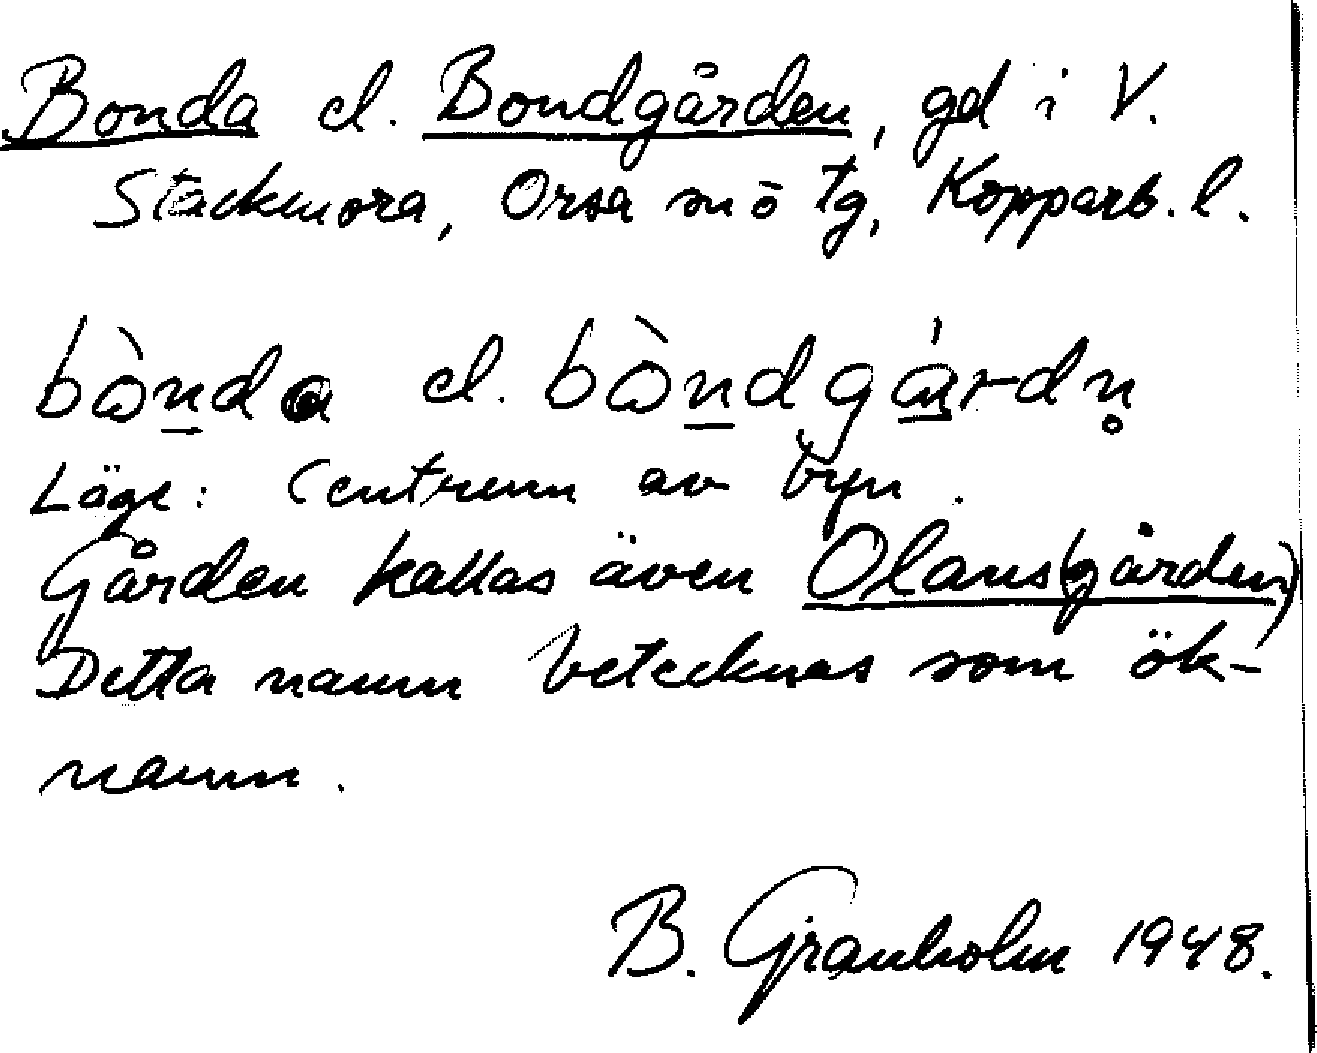 Bonda el. Bondgården, gd i V.
Stackmora, Orsa sn o tg, Kopparb. l.
bòn̲da el. bòn̲dgá̲rdn̥
Läge: Centrum av byn.
Gården kallas även Olans(gården)
Detta namn betecknas som ök-
namn.
B. Granholm 1948.